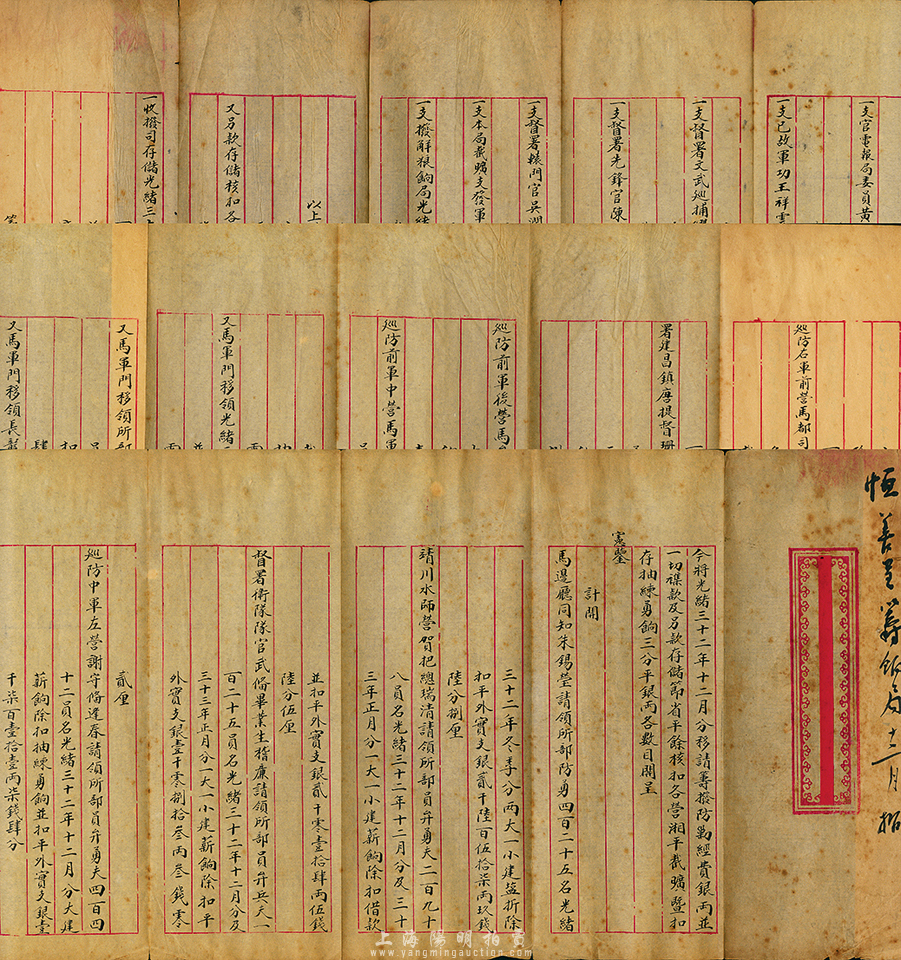 一支官電報局委員黃
一支已故軍功王祥雲
一支督署文武巡捕
一支督署先鋒官陳
一支督署轅門官吳
一支本局截曠支發軍
一支撥解狼餉局光緒
以上
又另款存儲核扣各
一收撥司存儲光緒三十
巡防右軍前營馬都司
署建昌鎮唐提督珊
巡防前軍後營馬
巡防前軍中營馬軍
又馬軍門移領光緒
又馬軍門移領所部
又馬軍門移領長
恒善呈籌餉局十二月摺
今將光緒三十二年十二月分移請籌撥防勦經費銀兩並
一切襍款及另款存儲節省平餘核扣各營湘平截曠暨扣
存抽練勇餉三分平銀兩各數目開呈
憲鑒
計開
馬邊廳同知朱錫瑩請領所部防勇四百二十五名光緒
三十二年冬季分兩大一小建薪折除
扣平外實支銀貳千陸百伍拾柒兩玖錢
陸分捌厘
靖川水師營賀把總瑞清請領所部員弁勇夫二百九十
八員名光緒三十二年十二月分及三十
三年正月分一大一小建薪餉除扣借款
並扣平外實支銀貳千零壹拾肆兩伍錢
陸分伍厘
督署衛隊隊官武備畢業生稽廉請領所部員弁兵夫一
百二十五員名光緒三十二年十二月分及
三十三年正月分一大一小建薪餉除扣平
外實支銀壹千零捌拾叁兩叁錢零
貳厘
巡防中軍左營謝守備逢春請領所部員弁勇夫四百四
十二員名光緒三十二年十二月分大建
薪餉除扣抽練勇餉並扣平外實支銀壹
千柒百壹拾壹兩柒錢肆分
上海陽明拍賣
www.yangmingauction.com